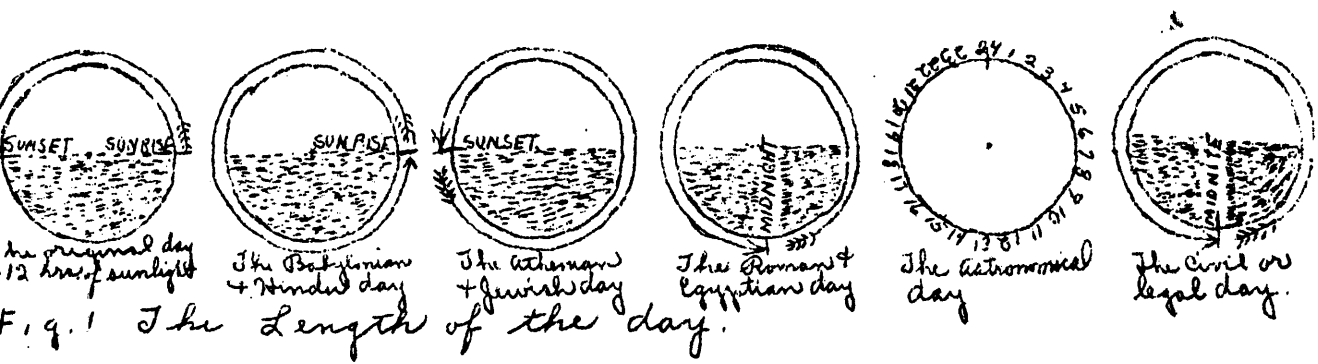 SUNSET SUNRISE
he original day
12 hrs of sunlight
SUNRISE
The Babylonian
+ Hindu day
SUNSET
The Athenian
+ Jewish day
MIDNIGHT
The Roman +
Egyptian day
24 1 2 3 4 5 6 7 8 9 10 11 12 13 14 15 16 17 18 19 20 21 22 23
The astronomical
day
MIDNITE
The Civil or
legal day.
Fig. 1 The Length of the day.